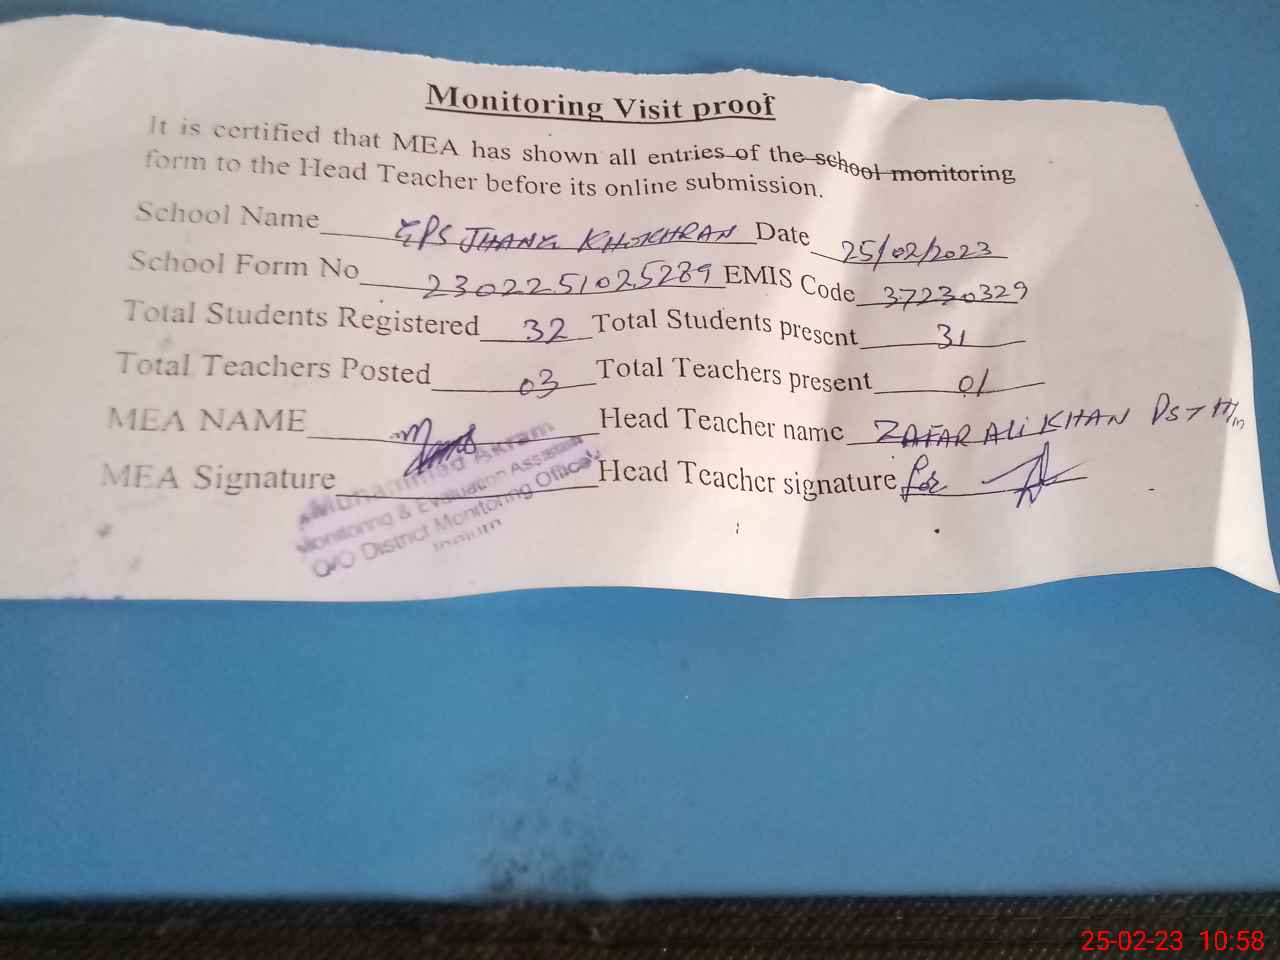 Monitoring Visit proof
It is certified that MEA has shown all entries of the school monitoring
form to the Head Teacher before its online submission.
School Name GPS JHANG KHOKHRAN Date 25/02/2023
School Form No 2302251025289 EMIS Code 37230329
Total Students Registered 32 Total Students present 31
Total Teachers Posted 03 Total Teachers present 01
MEA NAME Head Teacher name ZAFAR ALI KHAN PST
MEA Signature Head Teacher signature for
Muhammad Akram
Monitoring & Evaluation Assistant
O/O District Monitoring Officer
Jhelum
25-02-23 10:58